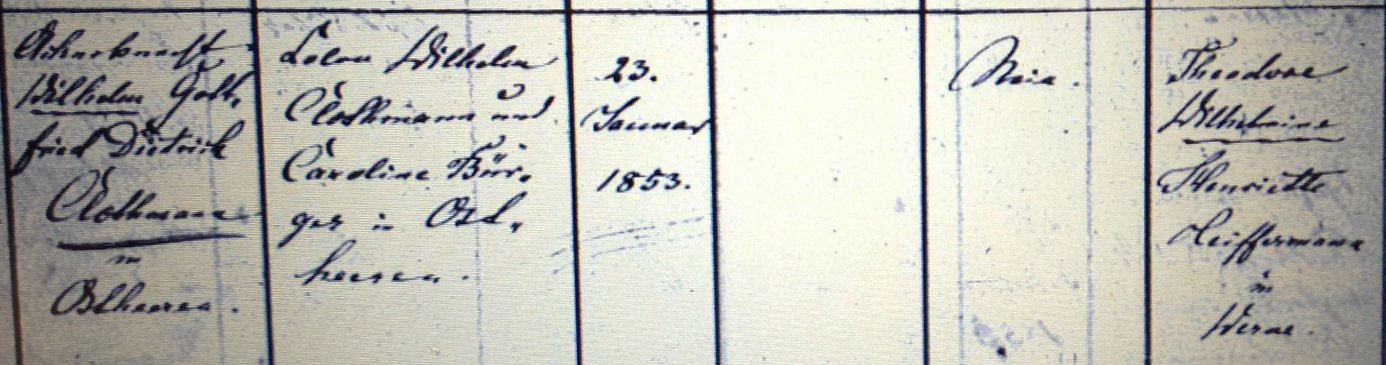 Ackerknecht
Wilhelm Gott-
fried Dietrich
Clothmann
in
Ostheeren.
Wilhelm
Clothmann und
Caroline Bür-
ger in Ost-
heeren.
23.
Januar
1853.
Nein.
Theodore
Wilhelmine
Henriette
in
Werne.